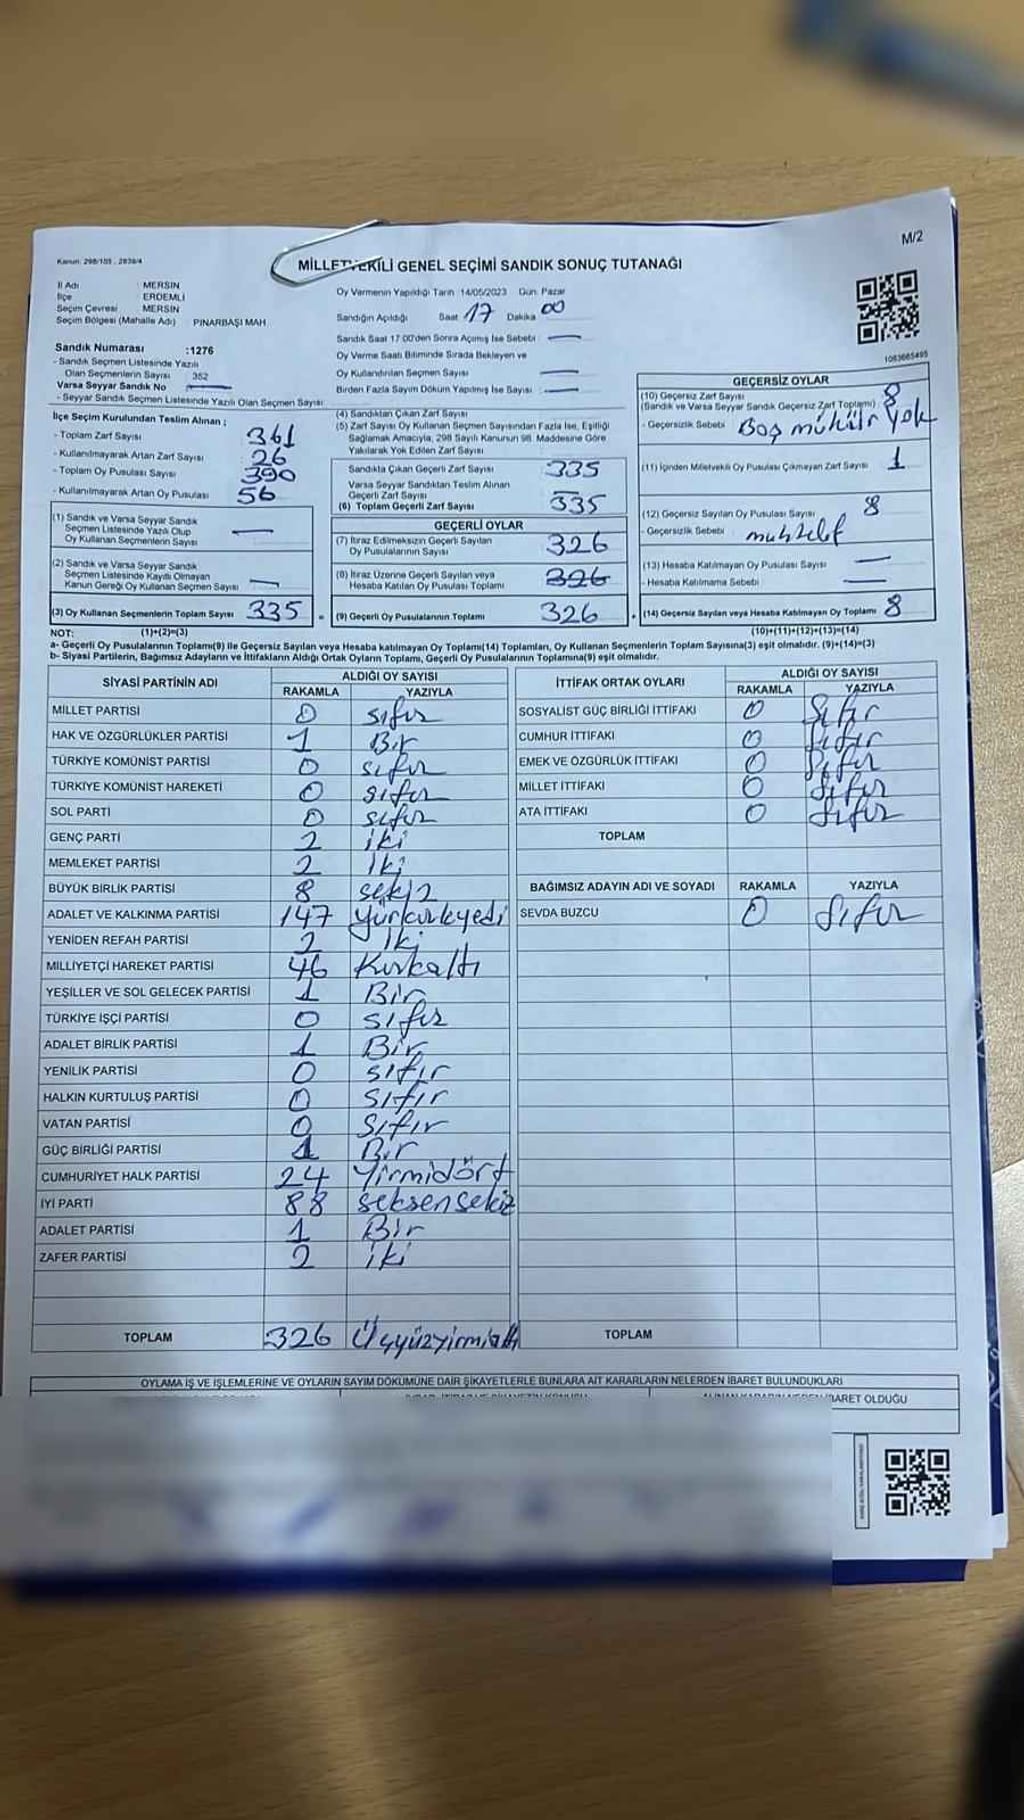 M/2
Kanun: 298/105, 2839/4
MİLLETVEKİLİ GENEL SEÇİMİ SANDIK SONUÇ TUTANAĞI
İl Adı MERSİN
İlçe ERDEMLİ
Seçim Çevresi MERSİN
Seçim Bölgesi (Mahalle Adı) PINARBAŞI MAH
Oy Vermenin Yapıldığı Tarih :14/05/2023 Gün: Pazar
Sandığın Açıldığı Saat 17 Dakika 00
Sandık Saat 17:00'den Sonra Açımış İse Sebebi
Oy Verme Saati Bitiminde Sırada Bekleyen ve
Oy Kullandırılan Seçmen Sayısı
Birden Fazla Sayım Döküm Yapılmış İse Sayısı :
Sandık Numarası :1276
- Sandık Seçmen Listesinde Yazılı
Olan Seçmenlerin Sayısı : 352
Varsa Seyyar Sandık No
- Seyyar Sandık Seçmen Listesinde Yazılı Olan Seçmen Sayısı
1083665495
İlçe Seçim Kurulundan Teslim Alınan ;
- Toplam Zarf Sayısı 361
- Kullanılmayarak Artan Zarf Sayısı 26
- Toplam Oy Pusulası Sayısı 390
- Kullanılmayarak Artan Oy Pusulası 56
(1) Sandık ve Varsa Seyyar Sandık
Seçmen Listesinde Yazılı Olup
Oy Kullanan Seçmenlerin Sayısı
(2) Sandık ve Varsa Seyyar Sandık
Seçmen Listesinde Kayıtlı Olmayan
Kanun Gereği Oy Kullanan Seçmen Sayısı
(3) Oy Kullanan Seçmenlerin Toplam Sayısı 335 =
(4) Sandıktan Çıkan Zarf Sayısı
(5) Zarf Sayısı Oy Kullanan Seçmen Sayısından Fazla İse, Eşitliği
Sağlamak Amacıyla, 298 Sayılı Kanunun 98. Maddesine Göre
Yakılarak Yok Edilen Zarf Sayısı
Sandıkta Çıkan Geçerli Zarf Sayısı 335
Varsa Seyyar Sandıktan Teslim Alınan
Geçerli Zarf Sayısı
(6) Toplam Geçerli Zarf Sayısı 335
GEÇERLİ OYLAR
(7) İtiraz Edilmeksizin Geçerli Sayılan
Oy Pusulalarının Sayısı 326
(8) İtiraz Üzerine Geçerli Sayılan veya
Hesaba Katılan Oy Pusulası Toplamı 326
(9) Geçerli Oy Pusulalarının Toplamı 326 +
GEÇERSİZ OYLAR
(10) Geçersiz Zarf Sayısı
(Sandık ve Varsa Seyyar Sandık Geçersiz Zarf Toplamı) 8
- Geçersizlik Sebebi Boş mühür Yok
(11) İçinden Milletvekili Oy Pusulası Çıkmayan Zarf Sayısı 1
(12) Geçersiz Sayılan Oy Pusulası Sayısı 8
- Geçersizlik Sebebi muhtelif
(13) Hesaba Katılmayan Oy Pusulası Sayısı
- Hesaba Katılmama Sebebi
(14) Geçersiz Sayılan veya Hesaba Katılmayan Oy Toplamı 8
NOT: (1)+(2)=(3) (10)+(11)+(12)+(13)=(14)
a- Geçerli Oy Pusulalarının Toplamı(9) ile Geçersiz Sayılan veya Hesaba katılmayan Oy Toplamı(14) Toplamları, Oy Kullanan Seçmenlerin Toplam Sayısına(3) eşit olmalıdır. (9)+(14)=(3)
b- Siyasi Partilerin, Bağımsız Adayların ve İttifakların Aldığı Ortak Oyların Toplamı, Geçerli Oy Pusulalarının Toplamına(9) eşit olmalıdır.
SİYASİ PARTİNİN ADI ALDIĞI OY SAYISI
RAKAMLA YAZIYLA
MİLLET PARTİSİ 0 sıfır
HAK VE ÖZGÜRLÜKLER PARTİSİ 1 Bir
TÜRKİYE KOMÜNİST PARTİSİ 0 sıfır
TÜRKİYE KOMÜNİST HAREKETİ 0 sıfır
SOL PARTİ 0 sıfır
GENÇ PARTİ 2 iki
MEMLEKET PARTİSİ 2 iki
BÜYÜK BİRLİK PARTİSİ 8 sekiz
ADALET VE KALKINMA PARTİSİ 147 Yüzkırkyedi
YENİDEN REFAH PARTİSİ 2 iki
MİLLİYETÇİ HAREKET PARTİSİ 46 Kırkaltı
YEŞİLLER VE SOL GELECEK PARTİSİ 1 Bir
TÜRKİYE İŞÇİ PARTİSİ 0 sıfır
ADALET BİRLİK PARTİSİ 1 Bir
YENİLİK PARTİSİ 0 sıfır
HALKIN KURTULUŞ PARTİSİ 0 sıfır
VATAN PARTİSİ 0 Sıfır
GÜÇ BİRLİĞİ PARTİSİ 1 Bir
CUMHURİYET HALK PARTİSİ 24 Yirmidört
İYİ PARTİ 88 seksensekiz
ADALET PARTİSİ 1 Bir
ZAFER PARTİSİ 2 iki
TOPLAM 326 Üçyüzyirmialtı
İTTİFAK ORTAK OYLARI ALDIĞI OY SAYISI
RAKAMLA YAZIYLA
SOSYALİST GÜÇ BİRLİĞİ İTTİFAKI 0 Sıfır
CUMHUR İTTİFAKI 0 Sıfır
EMEK VE ÖZGÜRLÜK İTTİFAKI 0 Sıfır
MİLLET İTTİFAKI 0 Sıfır
ATA İTTİFAKI 0 Sıfır
TOPLAM
BAĞIMSIZ ADAYIN ADI VE SOYADI RAKAMLA YAZIYLA
SEVDA BUZCU 0 Sıfır
TOPLAM
OYLAMA İŞ VE İŞLEMLERİNE VE OYLARIN SAYIM DÖKÜMÜNE DAİR ŞİKAYETLERLE BUNLARA AİT KARARLARIN NELERDEN İBARET BULUNDUKLARI
İBARET OLDUĞU